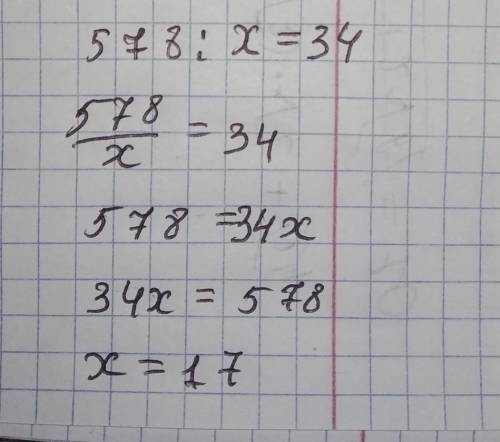 578 : x = 34
578/x = 34
578 = 34x
34x = 578
x = 17